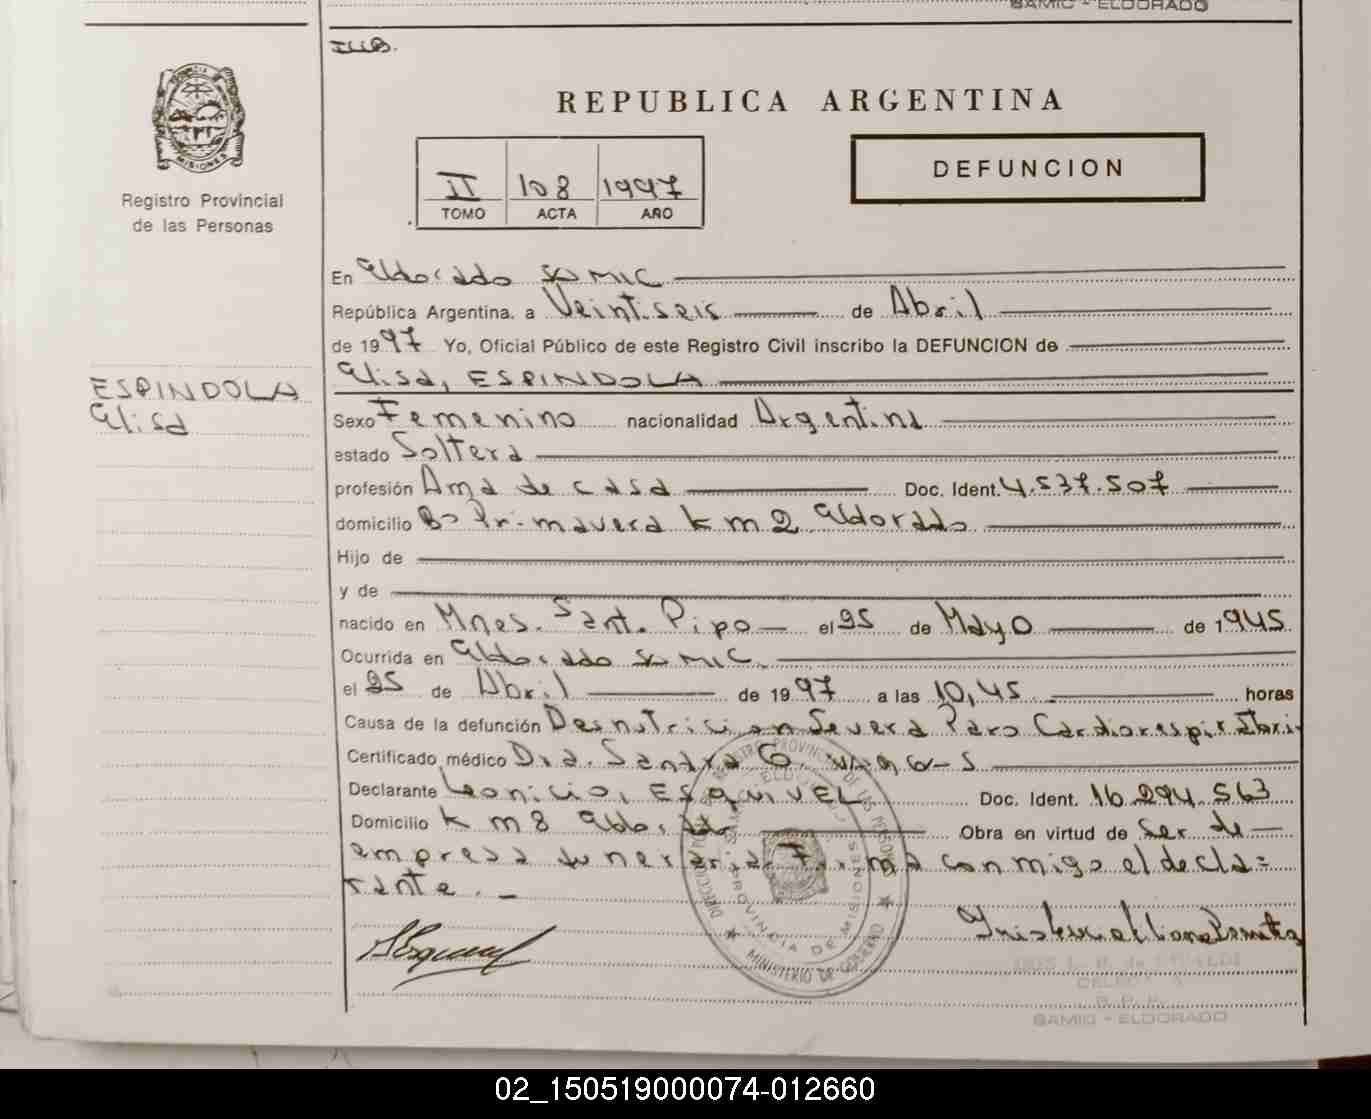 SAMIC - ELDORADO
REPUBLICA ARGENTINA
MISIONES
Registro Provincial
de las Personas
II 108 1997
TOMO ACTA AÑO
DEFUNCION
En Eldorado SAMIC
República Argentina. a Veintiseis de Abril
de 1997 Yo, Oficial Público de este Registro Civil inscribo la DEFUNCION de
Elisa, ESPINDOLA
ESPINDOLA
Elisa
Sexo Femenino nacionalidad Argentina
estado Soltera
profesión Ama de casa Doc. Ident. 4.537.507
domicilio Bº Primavera km 2 Eldorado
Hijo de
y de
nacido en Mnes. Sant. Pipo el 25 de Mayo de 1945
Ocurrida en Eldorado SAMIC.
el 25 de Abril de 1997 a las 10,45 horas
Causa de la defunción Desnutricion Severa Paro Cardiorespiratori
Certificado médico Dra. Sandra G.
Declarante Leonicio, ESQUIVEL Doc. Ident. 16.294.563
Domicilio Km 8 Eldorado Obra en virtud de Ser de
empresa funeraria Firma conmigo el decla=
rante. -
REGISTRO PROVINCIAL DE LAS PERSONAS
PROVINCIA DE MISIONES
MINISTERIO DE GOBIERNO
SAMIC - ELDORADO
02_150519000074-012660